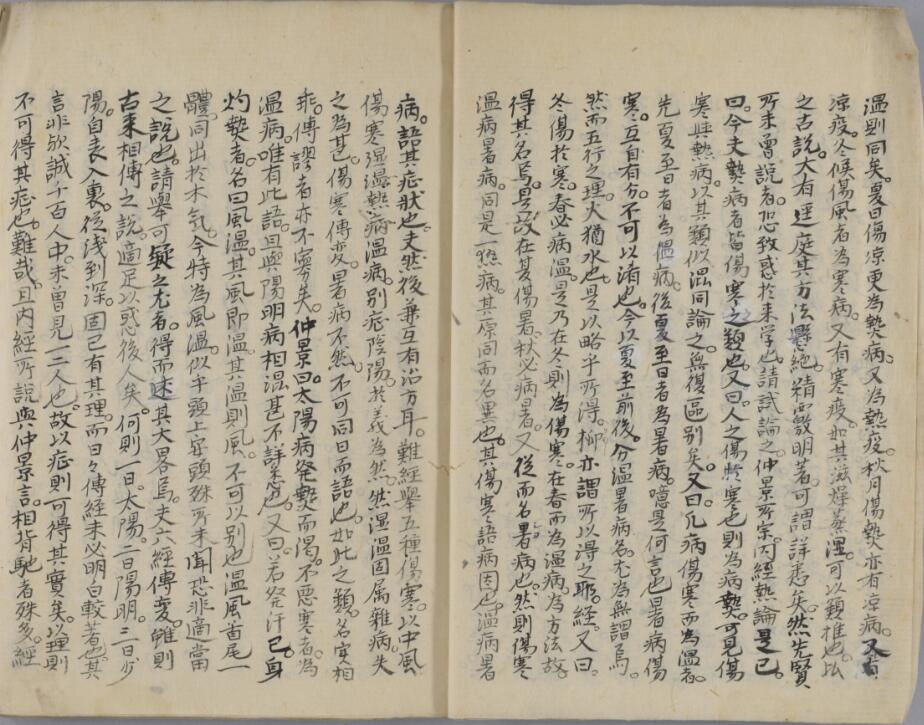 温則同矣。夏曰傷凉更為熱病。又為熱疫。秋月傷熱亦有凉病。又有
凉疫。冬候傷風者為寒病。又有寒疫。如其滋燥蒸湿。可以類推也。
之古說。大有逕庭其方法懸絕。精覈明著。可謂詳悉矣。然先賢
所未曾說者。恐致惑於来学也。請試論之。仲景所宗。内經熱論是已。
曰。今夫熱病者皆傷寒之類也。又曰。人之傷於寒也則為病熱。可見傷
寒與熱病。以其類似混同論之。無復區別矣。又曰。凡病傷寒而為温者。
先夏至日者為温病。後夏至日者為暑病。噫是何言也。暑病傷
寒。互自有分。不可以淆也。今以夏至前後。分温暑病名。尤為無謂焉。
然而五行之理。火猶水也。是以略乎所得。柳亦謂所以得之聖經。又曰。
冬傷於寒。春必病温。是乃在冬則為傷寒。在春而為温病。為方法故。
得其名焉。是故在夏傷暑。秋必病暑。又從而名暑病也。然則傷寒
温病暑病。同是一熱病。其原同而名異也。其傷寒語病因也。温病暑
病。語其症狀也。夫然後兼互有治方耳。難經舉五種傷寒。以中風
傷寒濕温熱病温病。別症陰陽。於義為然。然湿温固属雜病。失
之為甚。傷寒傳変。暑病不然。不可同日而語也。如此之類。名実相
乖。傳謬者亦不寡矣。仲景曰。太陽病発熱而渴。不悪寒者。為
温病。唯有此語。且與陽明病相混甚不詳悉也。又曰。若発汗已。身
灼熱者。名曰風温。其風即温。其温則風。不可以別也。温風首尾一
體。同出於木気。今特為風温。似乎頭上安頭。殊所未聞。恐非適當
之說也。請舉可疑之尤者。得而述其大畧焉。夫六經傳変。雖則
古来相傳之說。適足以惑後人矣。何則一日太陽。二日陽明。三日少
陽。自表入裏。從浅到深。固已有其理。而日々傳經未必明白較著也。其
言非欤。誠千百人中。未曾見一二人也。故以症則可得其實矣。以理則
不可得其症也。難哉。且内經所說與仲景言。相背馳者殊多。經